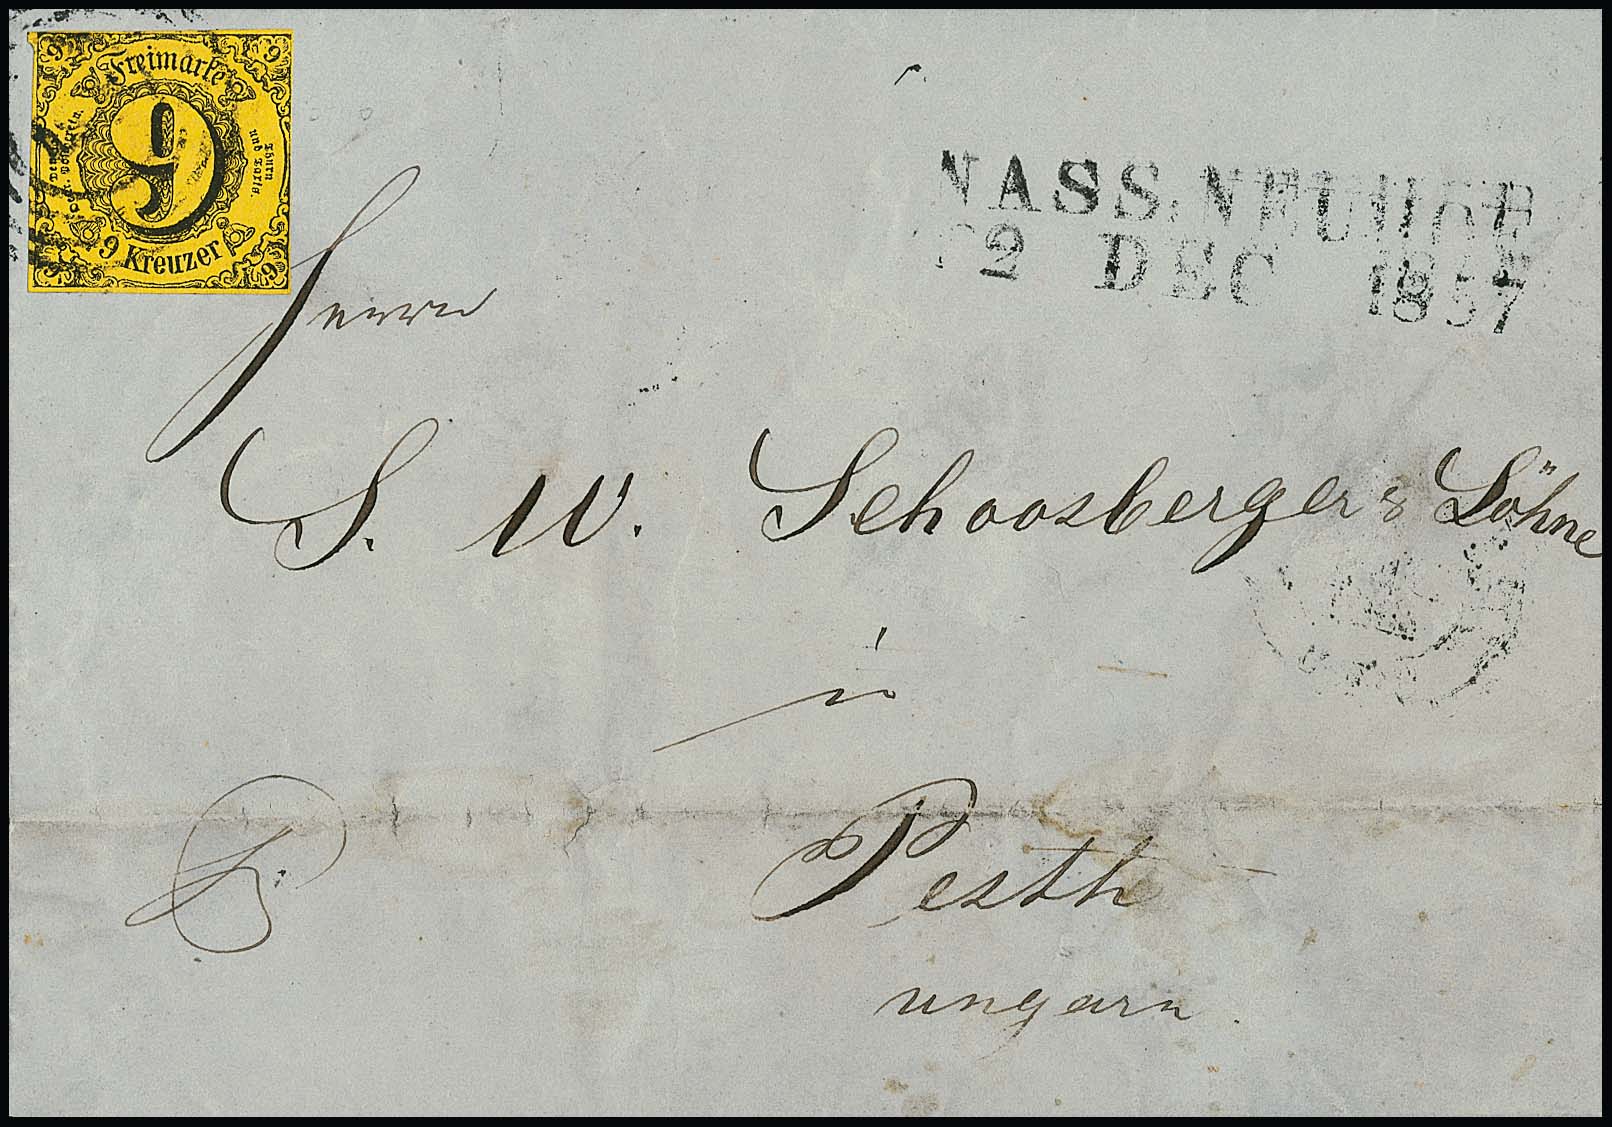 9 9
Freimarke
9
Thurn
und Taxis.
9 Kreuzer
9 9
NASS. NEUHOF
22 DEC 1857
Herrn
S. W. Schoosberger & Söhne
in
Pesth
ungarn.